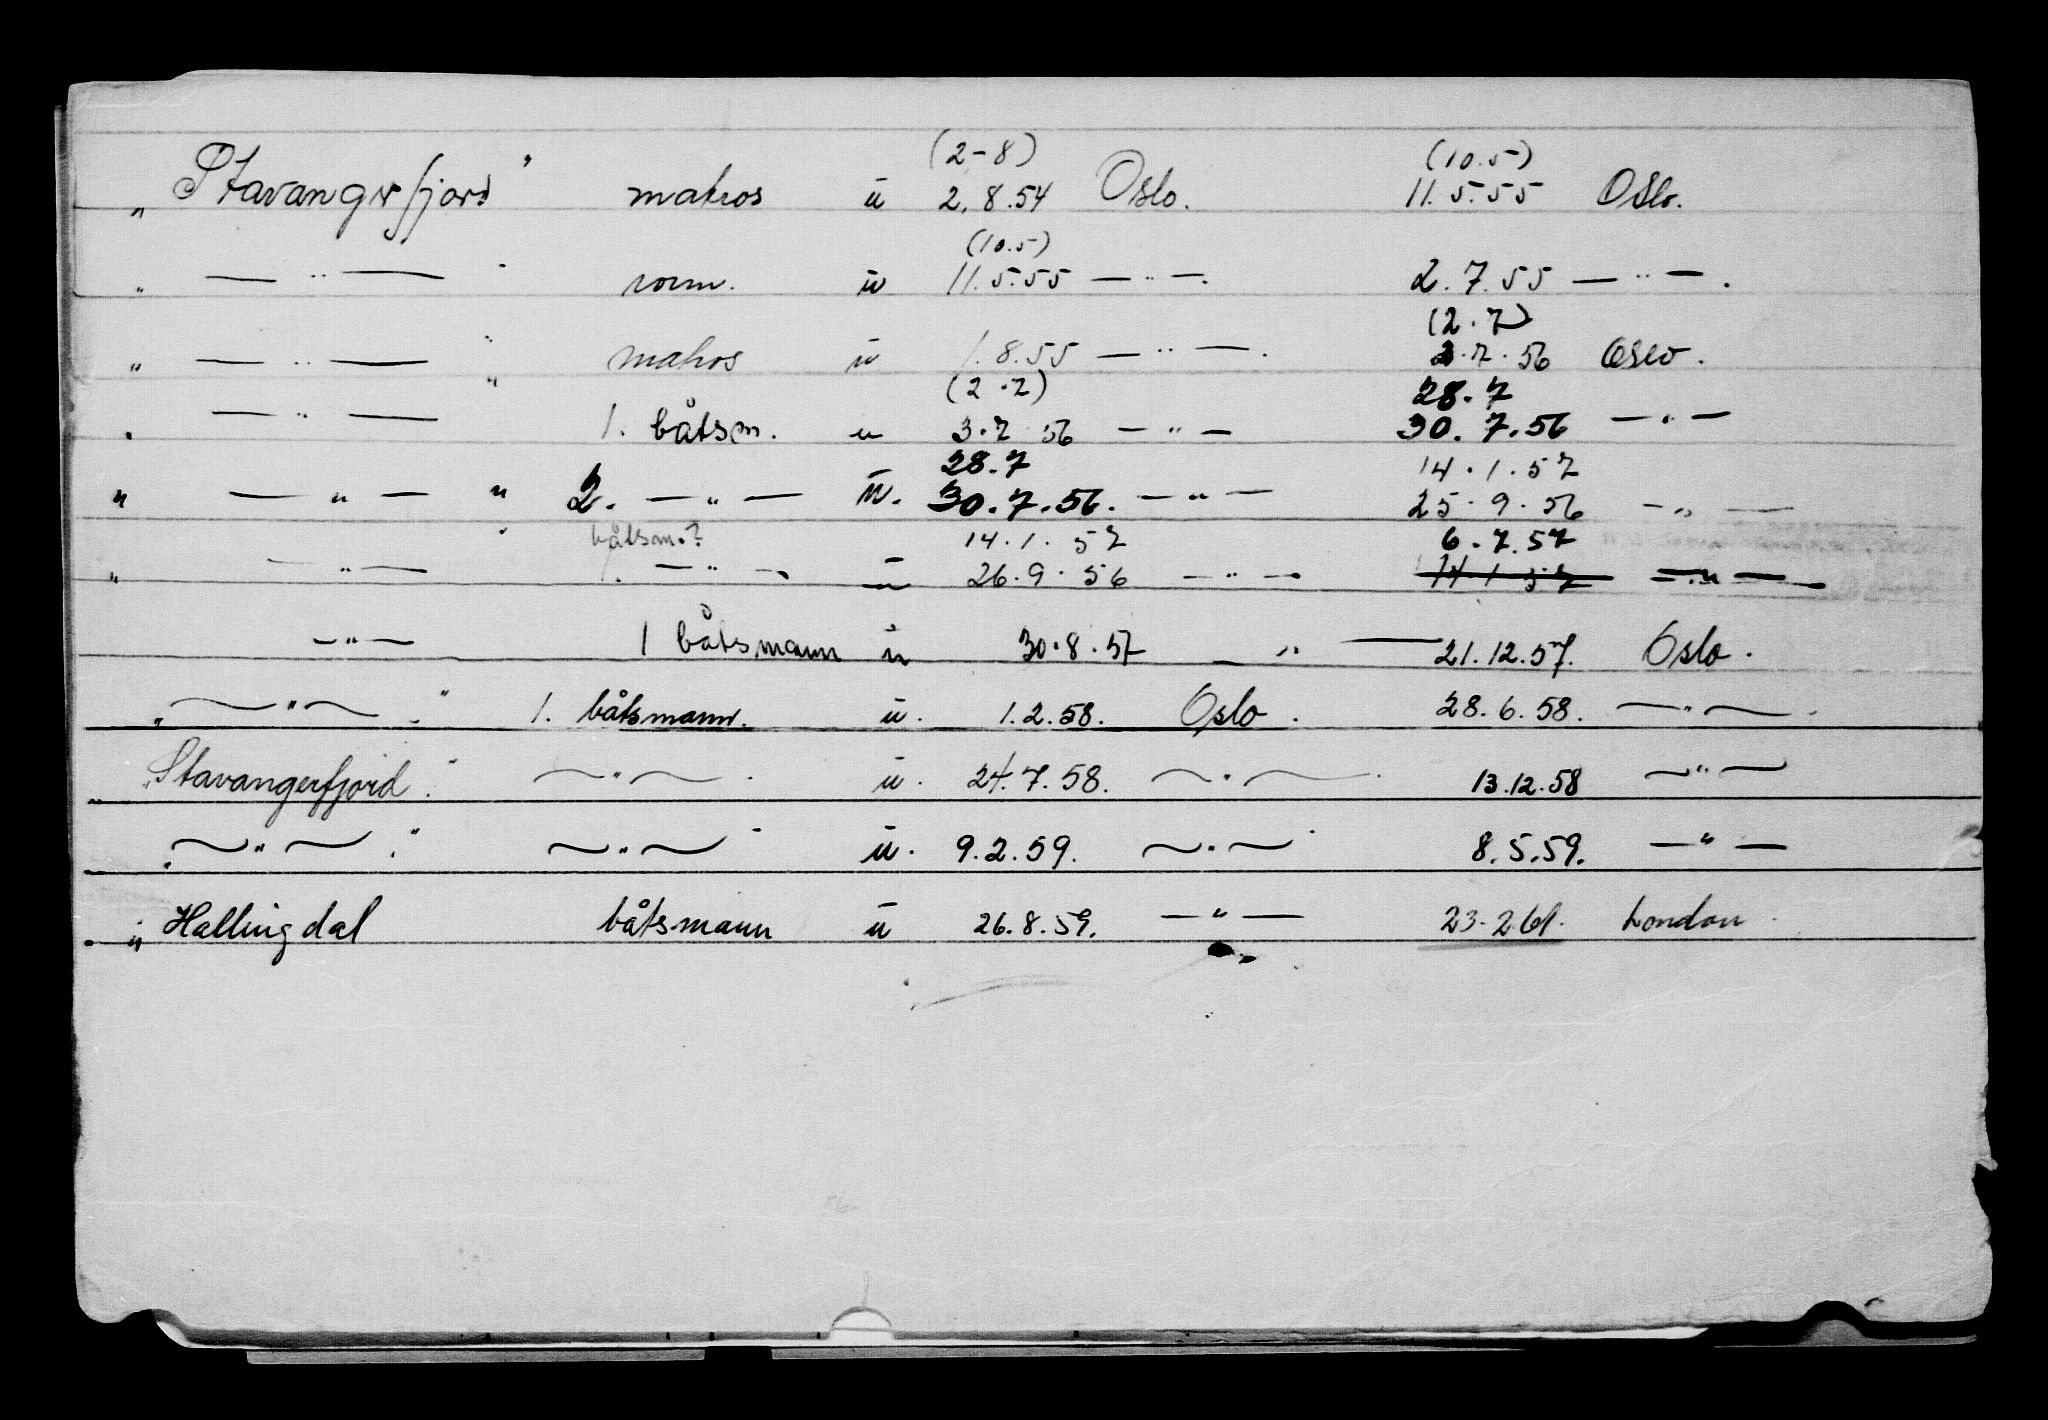 (2-8) (10.5)
„ Stavangerfjord" matros u 2.8.54 Oslo. 11.5.55 Oslo.
(10.5)
„ — " — " rorm. u 11.5.55 — " —. 2.7.55 — " —.
(2.7)
„ — " — " matros u 1.8.55 — " —. 3.7.56 Oslo.
(2.7) 28.7
— " — " 1. båtsm. u 3.7.56 — " — 30.7.56 — " —
28.7 14.1.57
„ — " — " 2. — " — u. 30.7.56. — " — 25.9.56 — " —
båtsm.? 14.1.57 6.7.57
„ — " — " 1. — " — u 26.9.56 — " — 14.1.57 — " —
— " — 1 båtsmann u 30.8.57 — " — 21.12.57. Oslo.
„ — " — " 1. båtsmann. u. 1.2.58. Oslo. 28.6.58. — " —.
„ Stavangerfjord." — " — u. 24.7.58. — " —. 13.12.58 — " —
„ — " — " — " — u. 9.2.59. — " — 8.5.59. — " —
„ Hallingdal båtsmann u 26.8.59. — " — 23.2.61. London